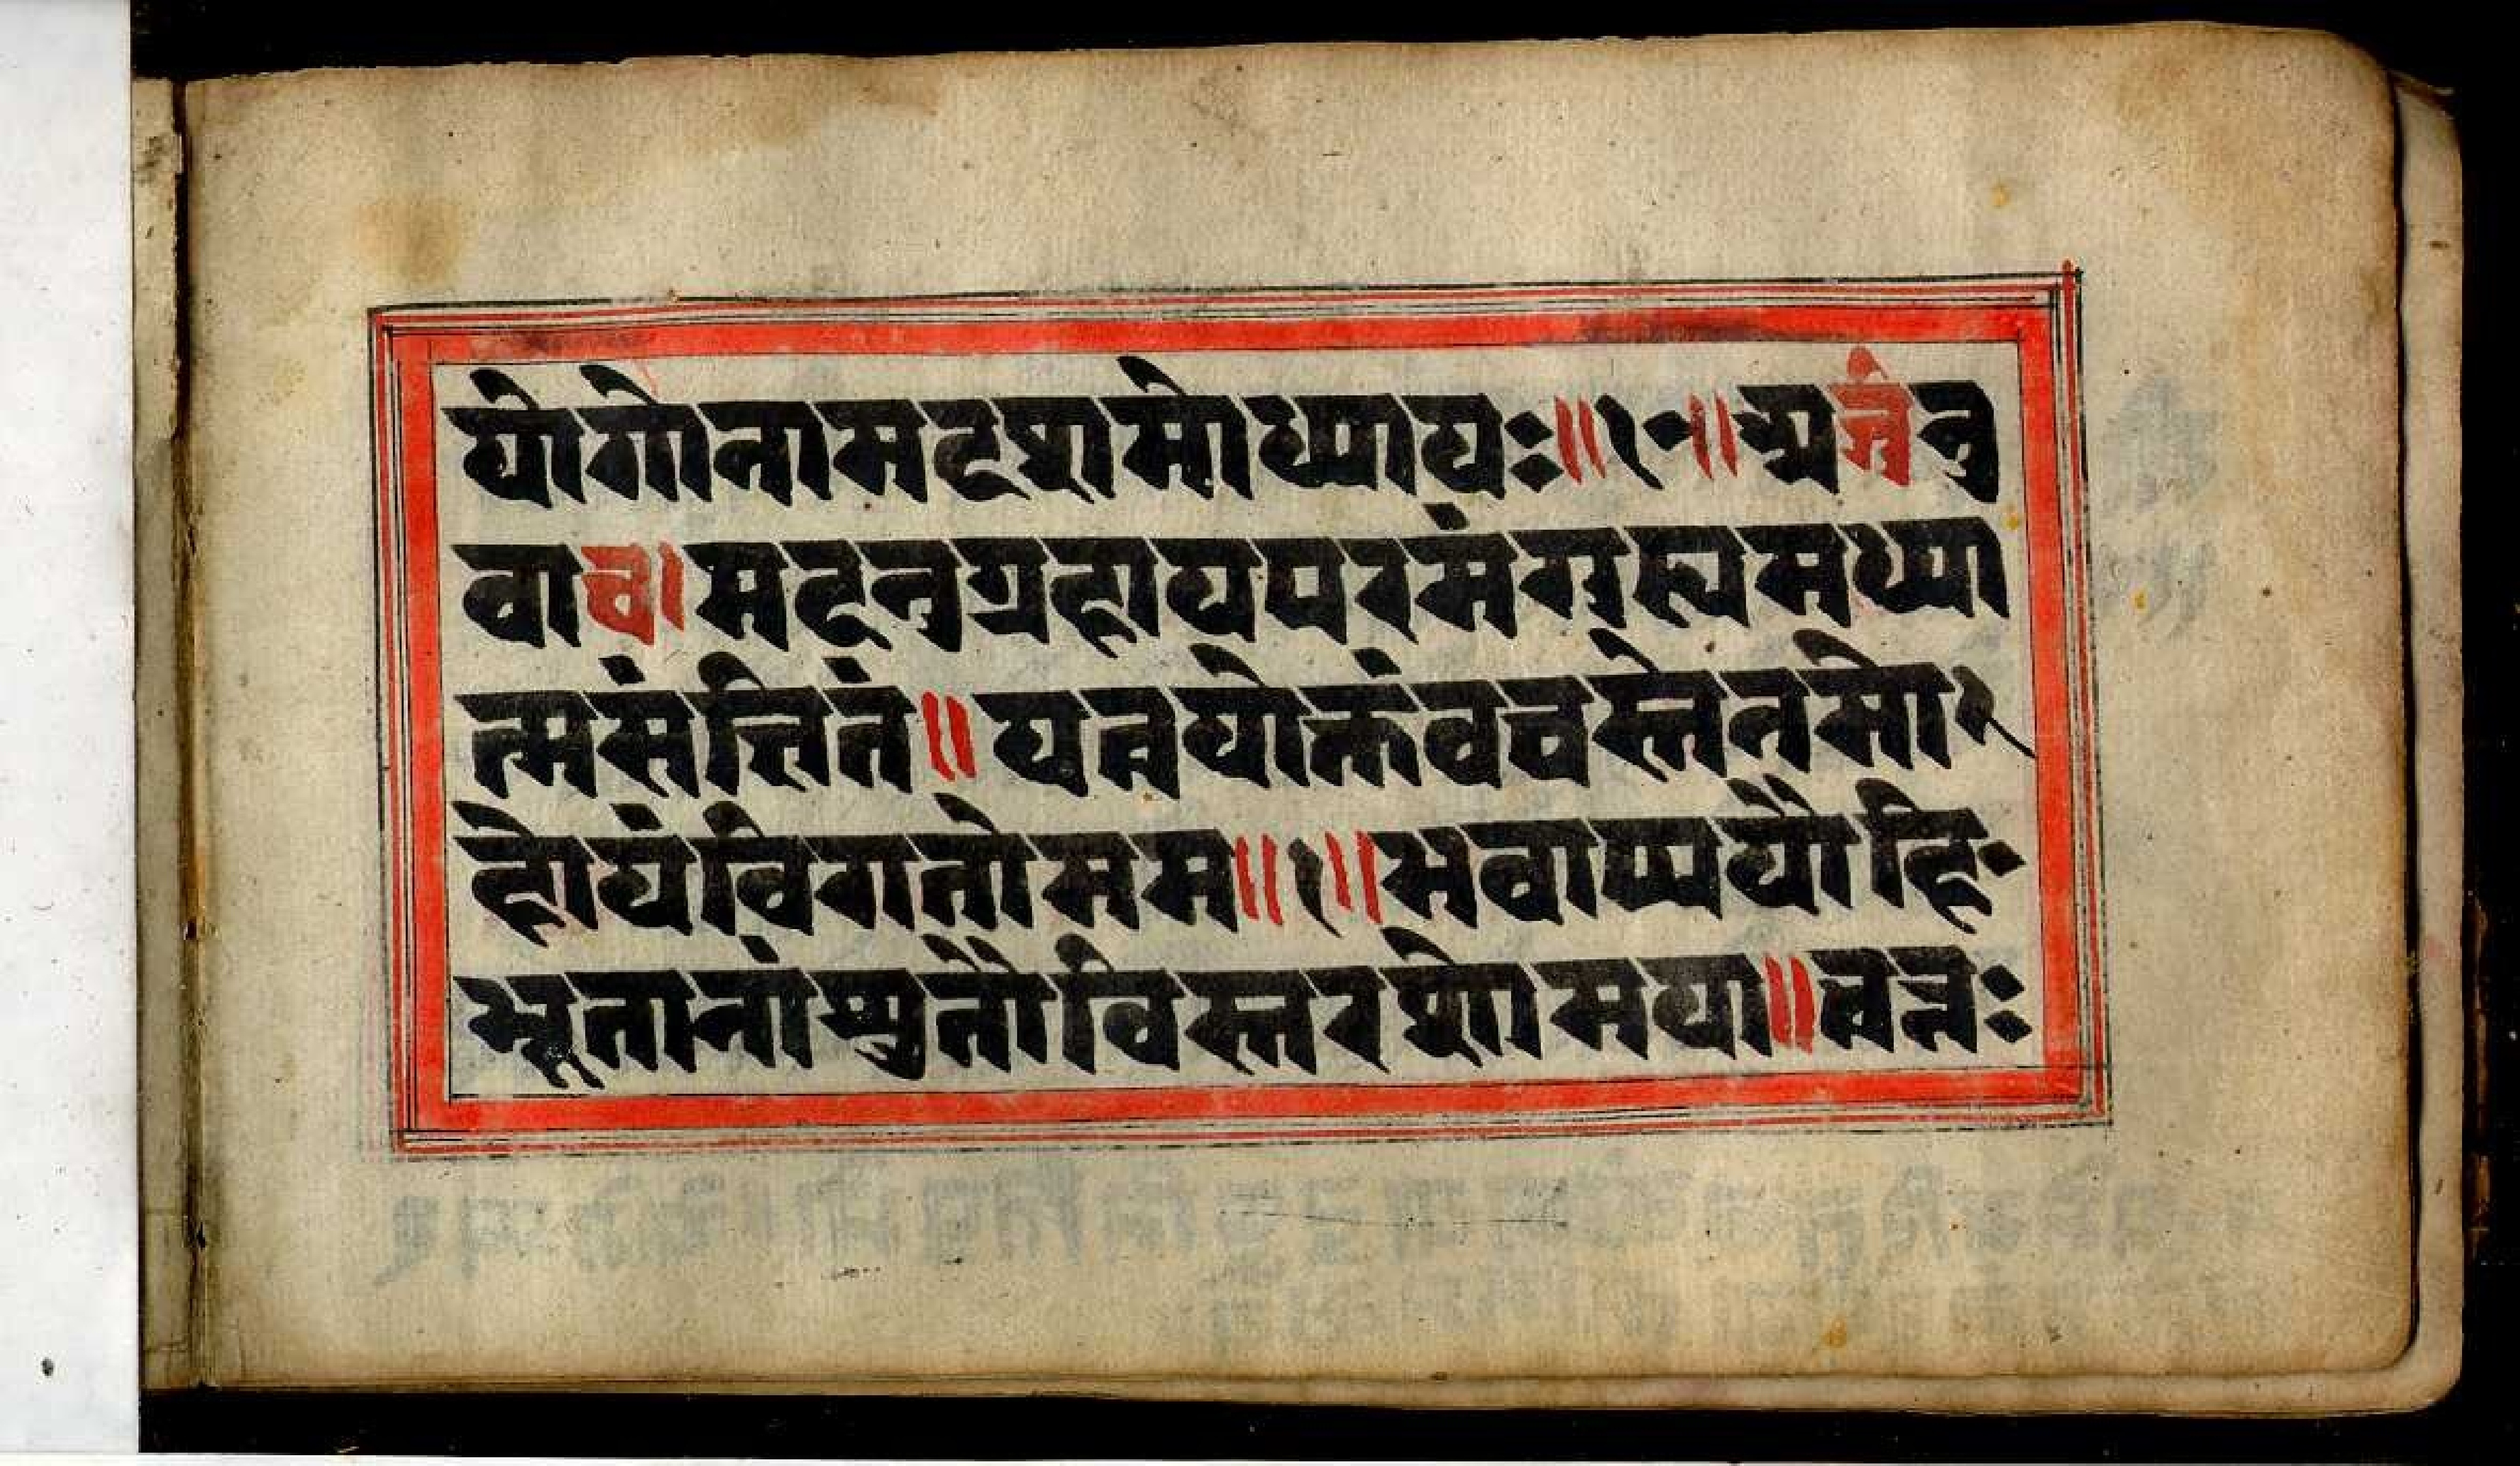 योगोनामदशमोध्यायः॥१०॥अर्जुनउ
वाच।मदनुग्रहायपरमंगुह्यमध्या
त्मसंज्ञितं॥यत्त्वयोक्तंवचस्तेनमो
होयंविगतोमम॥१॥भवाप्ययौहि
भूतानांश्रुतौविस्तरशोमया॥त्वत्तः